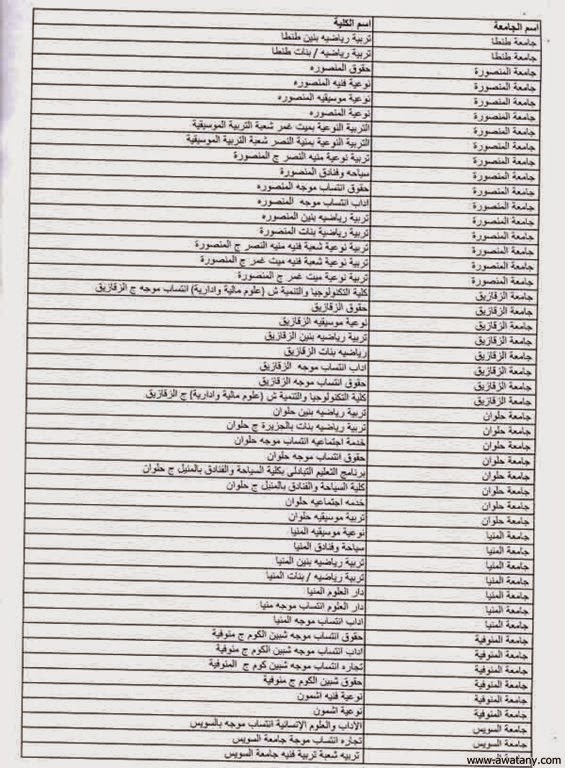 اسم الجامعة اسم الكلية
جامعة طنطا تربية رياضيه بنين طنطا
جامعة طنطا تربية رياضيه / بنات طنطا
جامعة المنصورة حقوق المنصوره
جامعة المنصورة نوعية فنيه المنصوره
جامعة المنصورة نوعية موسيقيه المنصوره
جامعة المنصورة نوعية المنصوره
جامعة المنصورة التربية النوعية بميت غمر شعبة التربية الموسيقية
جامعة المنصورة التربية النوعية بمنية النصر شعبة التربية الموسيقية
جامعة المنصورة تربية نوعية منيه النصر ج المنصورة
جامعة المنصورة سياحه وفنادق المنصورة
جامعة المنصورة حقوق انتساب موجه المنصوره
جامعة المنصورة اداب انتساب موجه المنصوره
جامعة المنصورة تربية رياضيه بنين المنصوره
جامعة المنصورة تربية رياضية بنات المنصورة
جامعة المنصورة تربية نوعية شعبة فنيه منيه النصر ج المنصورة
جامعة المنصورة تربية نوعية شعبة فنيه ميت غمر ج المنصورة
جامعة المنصورة تربية نوعية ميت غمر ج المنصورة
جامعة الزقازيق كلية التكنولوجيا والتنمية ش (علوم مالية وادارية) انتساب موجه ج الزقازيق
جامعة الزقازيق حقوق الزقازيق
جامعة الزقازيق نوعية موسيقيه الزقازيق
جامعة الزقازيق تربية رياضيه بنين الزقازيق
جامعة الزقازيق رياضيه بنات الزقازيق
جامعة الزقازيق اداب انتساب موجه الزقازيق
جامعة الزقازيق حقوق انتساب موجه الزقازيق
جامعة الزقازيق كلية التكنولوجيا والتنمية ش (علوم مالية وادارية) ج الزقازيق
جامعة حلوان تربية رياضيه بنين حلوان
جامعة حلوان تربية رياضيه بنات بالجزيرة ج حلوان
جامعة حلوان خدمة اجتماعيه انتساب موجه حلوان
جامعة حلوان حقوق انتساب موجه حلوان
جامعة حلوان برنامج التعليم التبادلى بكلية السياحة والفنادق بالمنيل ج حلوان
جامعة حلوان كلية السياحة والفنادق بالمنيل ج حلوان
جامعة حلوان خدمه اجتماعيه حلوان
جامعة حلوان تربية موسيقيه حلوان
جامعة المنيا نوعية موسيقيه المنيا
جامعة المنيا سياحة وفنادق المنيا
جامعة المنيا تربية رياضيه بنين المنيا
جامعة المنيا تربية رياضيه / بنات المنيا
جامعة المنيا دار العلوم المنيا
جامعة المنيا دار العلوم انتساب موجه منيا
جامعة المنيا اداب انتساب موجه المنيا
جامعة المنوفية حقوق انتساب موجه شبين الكوم ج منوفية
جامعة المنوفية اداب انتساب موجه شبين الكوم ج منوفية
جامعة المنوفية تجاره انتساب موجه شبين كوم ج المنوفية
جامعة المنوفية حقوق شبين الكوم ج منوفية
جامعة المنوفية نوعية فنيه اشمون
جامعة المنوفية نوعية اشمون
جامعة السويس الاداب والعلوم الإنسانية انتساب موجه بالسويس
جامعة السويس تجاره انتساب موجة جامعة السويس
تربيه شعبة تربية فنيه جامعة السويس
www.awatany.com